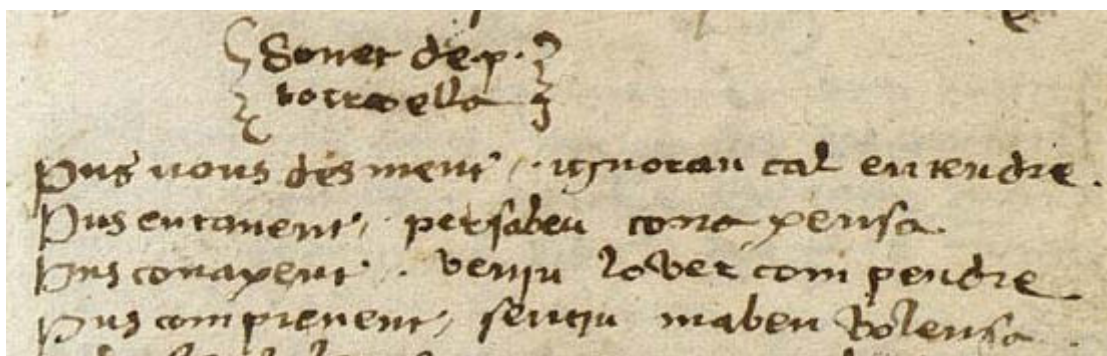 Sonet de .p.
torroella
Pus nous desment, . ignoran cal entendre .
Pus entanent, persaben conaxensa.
Pus conaxent . venju lo ver compendre
Pus comprenent, sentju maben volensa .